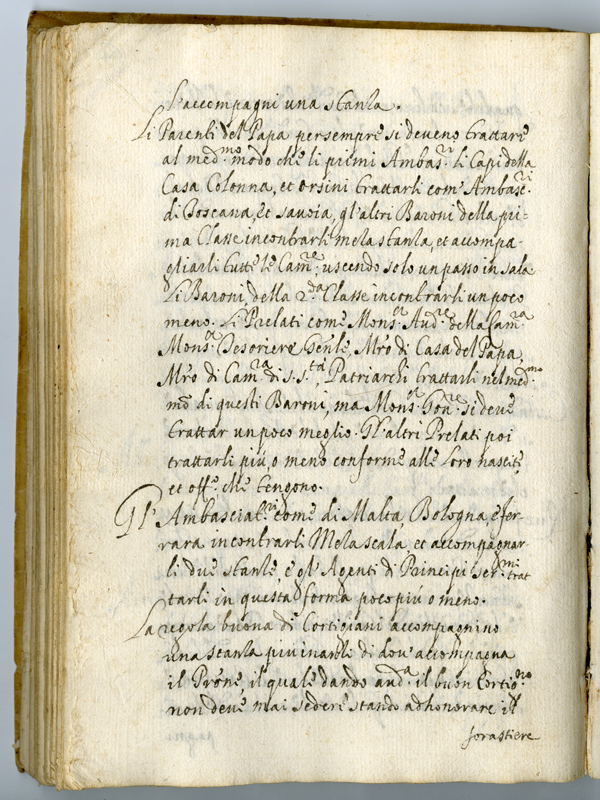 s'accompagni una stanza.
Li Parenti del Papa per sempre si deveno trattare
al med.mo modo che li primi Ambas.ri li Capi della
Casa Colonna, et Orsini trattarli come Ambasc.ri
di Toscana, et Savoia, gl'altri Baroni della pri=
ma Classe incontrarli meza stanza, et accompa-
gliarli tutte le Cam.re, uscendo solo un passo in sala
Li Baroni della 2.da Classe incontrarli un poco
meno. Li Prelati come Mons.or Aud.re della Cam.ra
Mons.or Tesoriero Gen.le, Mro di Casa del Papa,
Mro di Cam.ra di S. S.tà, Patriarchi trattarli nel med.mo
mo di questi Baroni, ma Mons.or Gov.re si deve
trattar un poco meglio. Gl'altri Prelati poi
trattarli più, o meno conforme alle loro nascite
et off.e che tengono.
Gl'Ambasciat.ri come di Malta, Bologna, e Fer-
rara incontrarli Meza scala, et accompagnar
li due stanze, e gl'Agenti di Principi Ser.mi trat
tarli in questa forma poco più o meno.
La regola buona di Cortigiani accompagnino
una stanza più inanzi di dov'accompagna
il Prone, il quale dando aud.a il buon Cortig.no
non deve mai sedere stando ad honorare il
forastiere